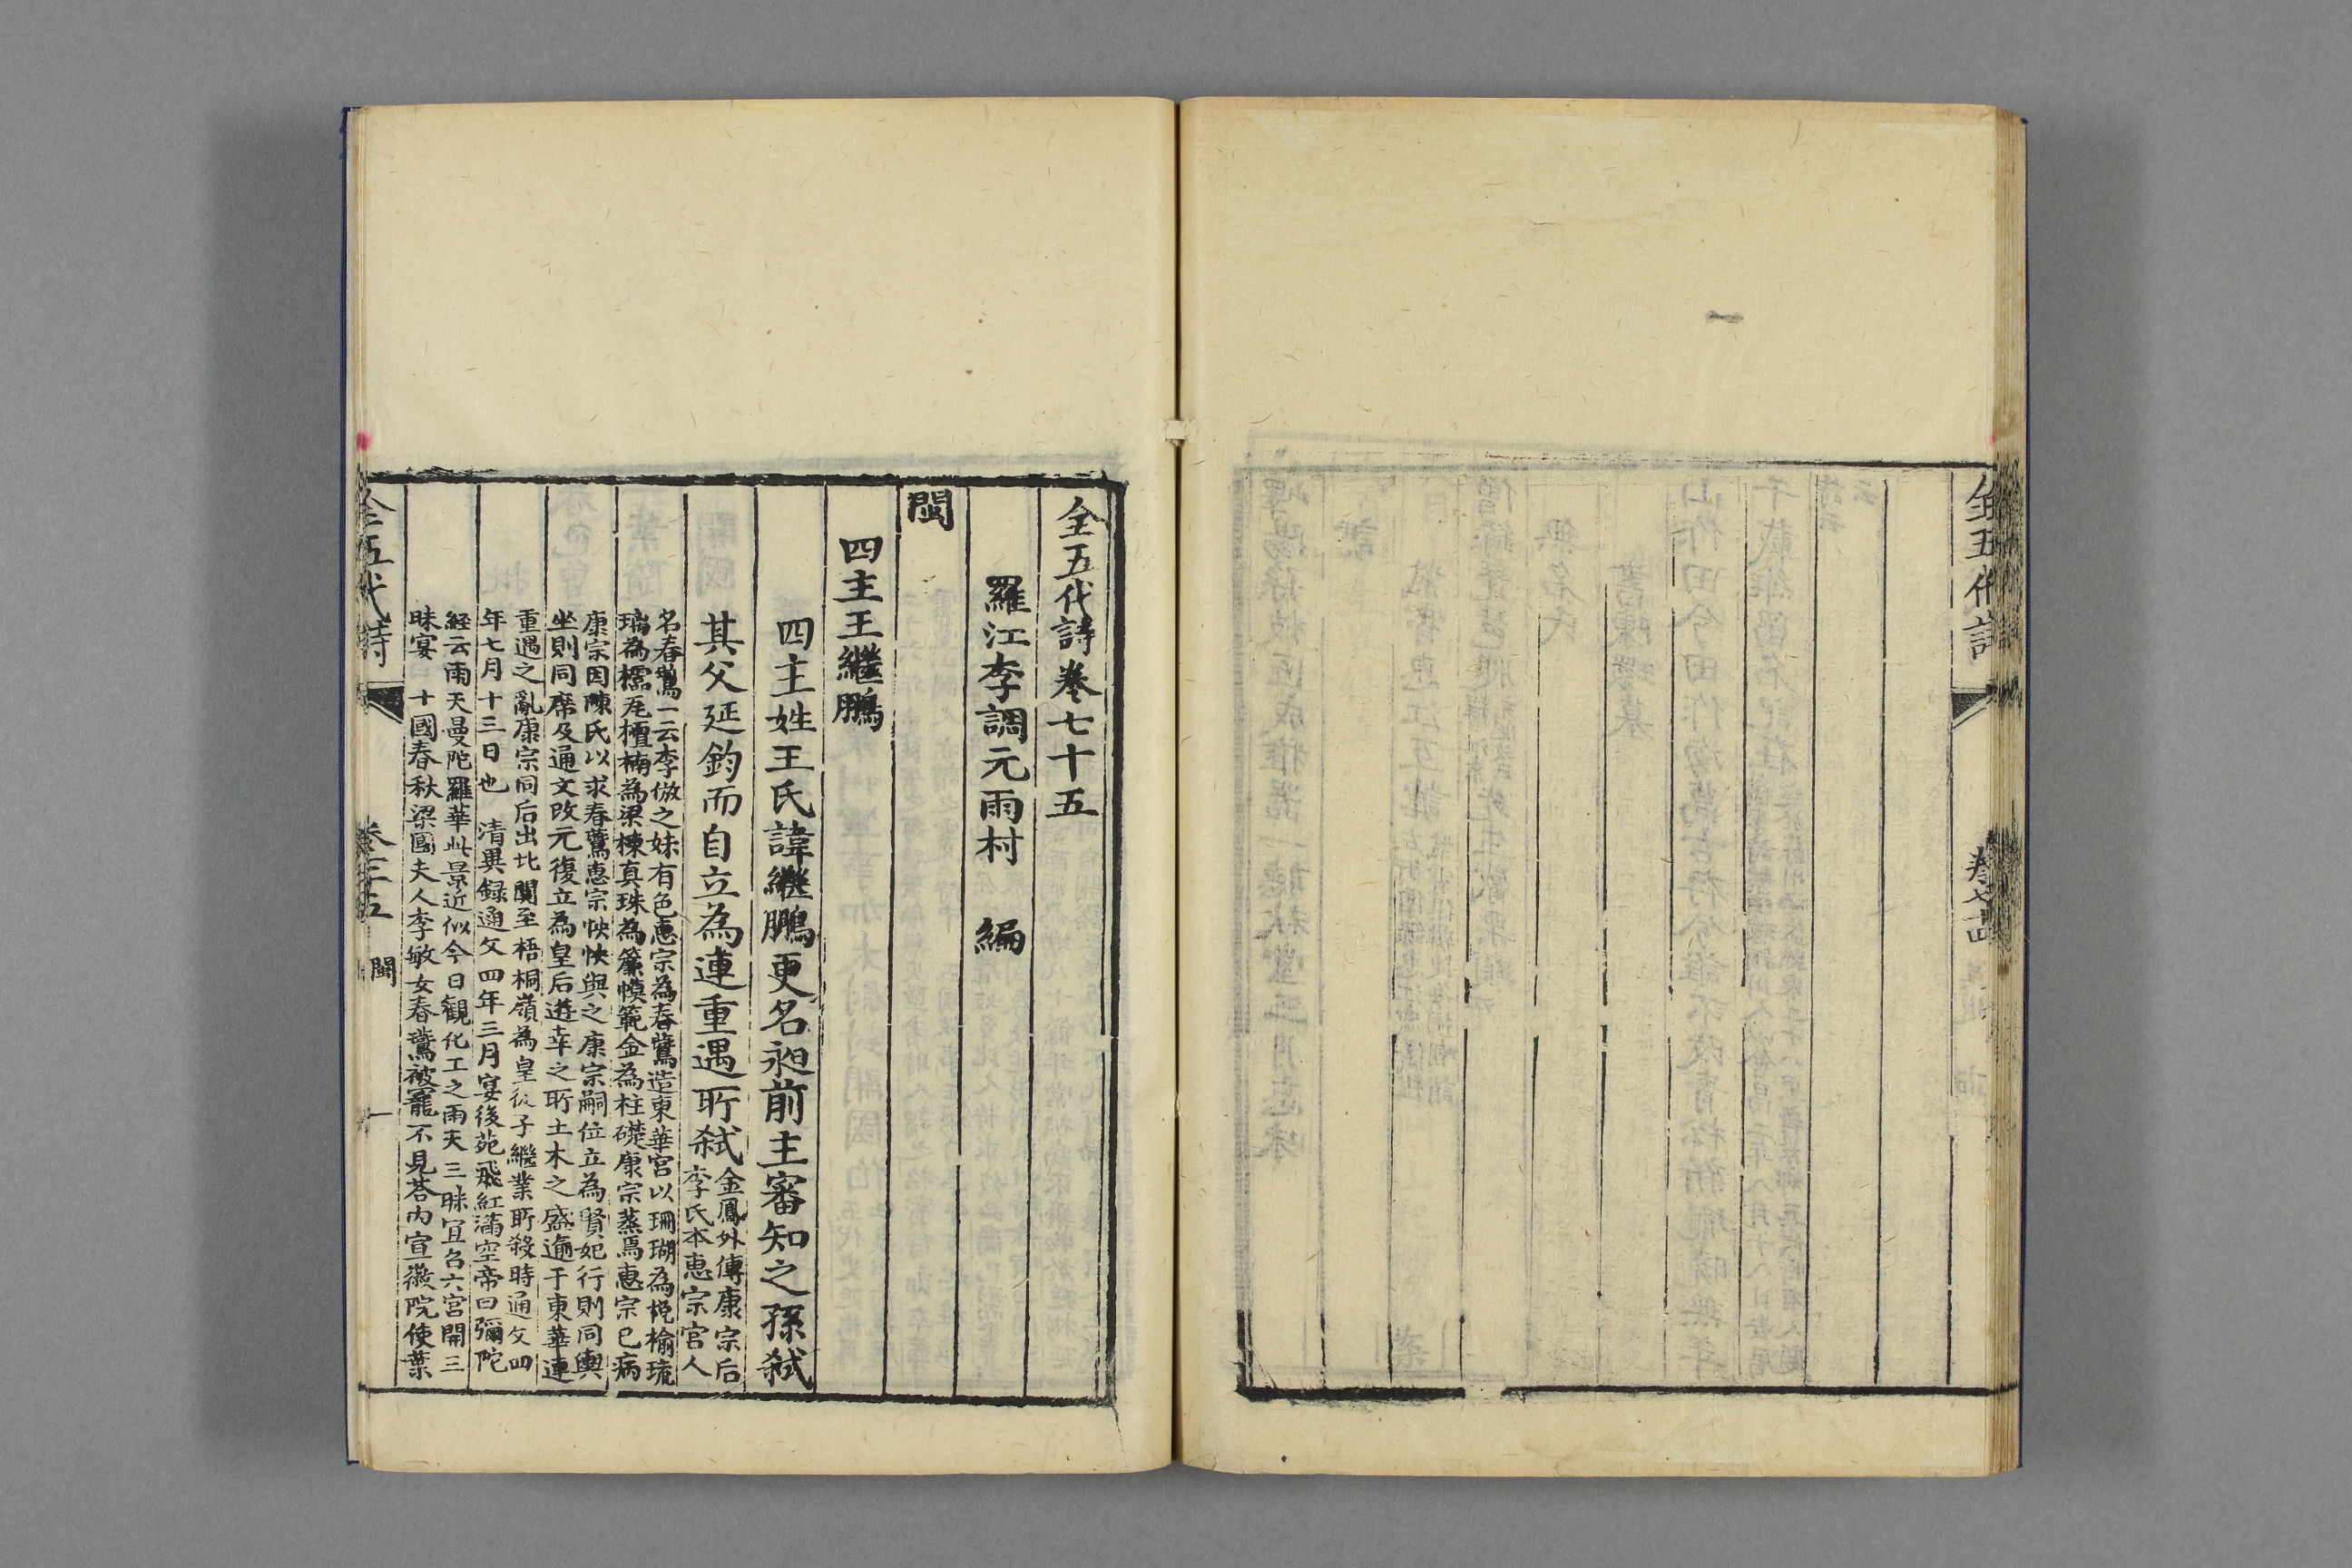 全五代詩
全五代詩卷七十五
羅江李調元雨村 編
閩
四主王繼鵬
四主姓王氏諱繼鵬更名昶前主審知之孫弑
其父延鈞而自立為連重遇所弑
金鳳外傳康宗后
李氏本惠宗宮人
名春鷰一云李倣之妹有色惠宗為春鷰造東華宮以珊瑚為棁榆琉
瑞為櫺瓦檀楠為梁棟真珠為簾幙範金為柱礎康宗蒸焉惠宗已病
康宗因陳氏以求春鷰惠宗怏怏與之康宗嗣位立為賢妃行則同輿
坐則同席及通文改元復立為皇后遊幸之所土木之盛逾于東華連
重遇之亂康宗同后出北關至梧桐嶺為皇從子繼業所殺時通文四
年七月十三日也 清異録通文四年三月宴後苑飛紅滿空帝曰彌陀
経云雨天曼陀羅華此景近似今日觀化工之雨天三昧宜召六宮開三
昧宴 十國春秋梁國夫人李敏女春鷰被寵不見荅内宣徽院使葉
全五代詩 卷七十五 閩 一